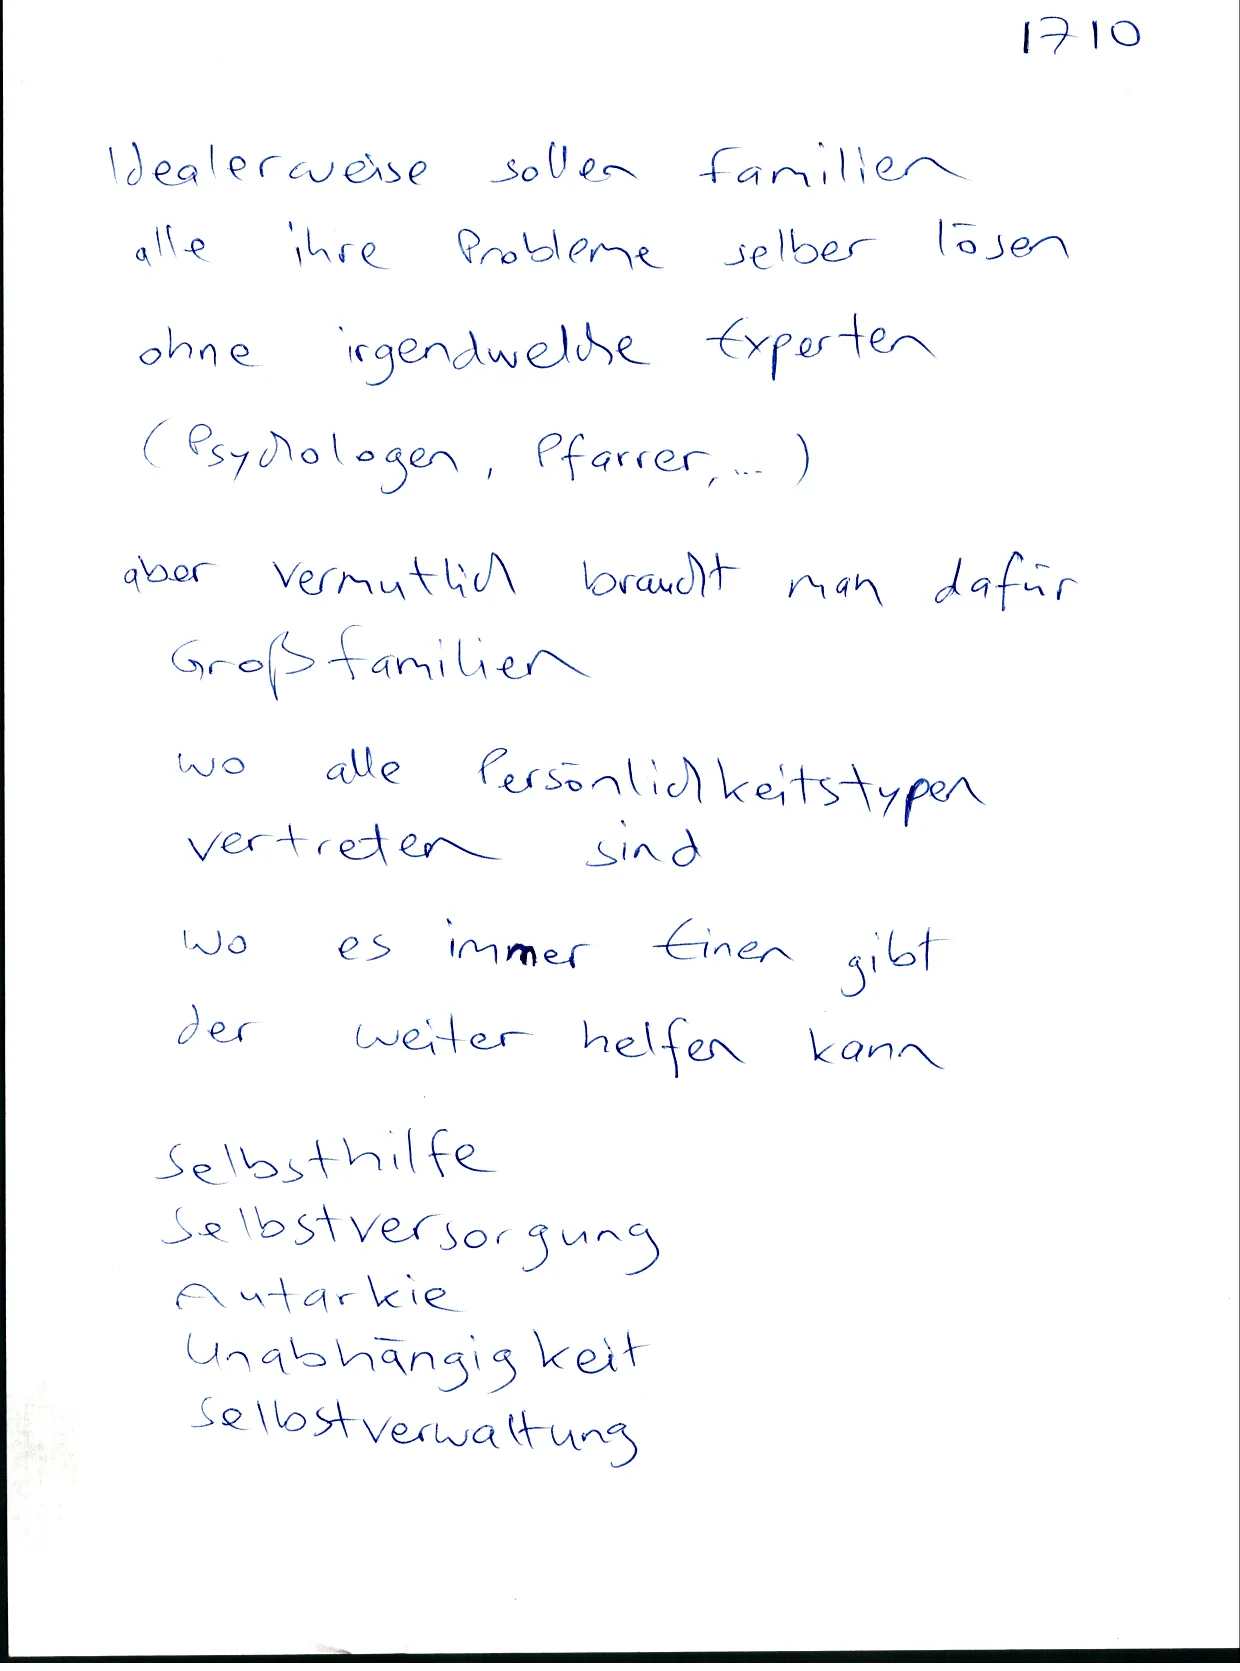 1710
Idealerweise sollen Familien
alle ihre Probleme selber lösen
ohne irgendwelche Experten
(Psychologen, Pfarrer, ... )
aber vermutlich braucht man dafür
Großfamilien
wo alle Persönlichkeitstypen
vertreten sind
wo es immer Einen gibt
der weiter helfen kann
Selbsthilfe
Selbstversorgung
Autarkie
Unabhängigkeit
Selbstverwaltung